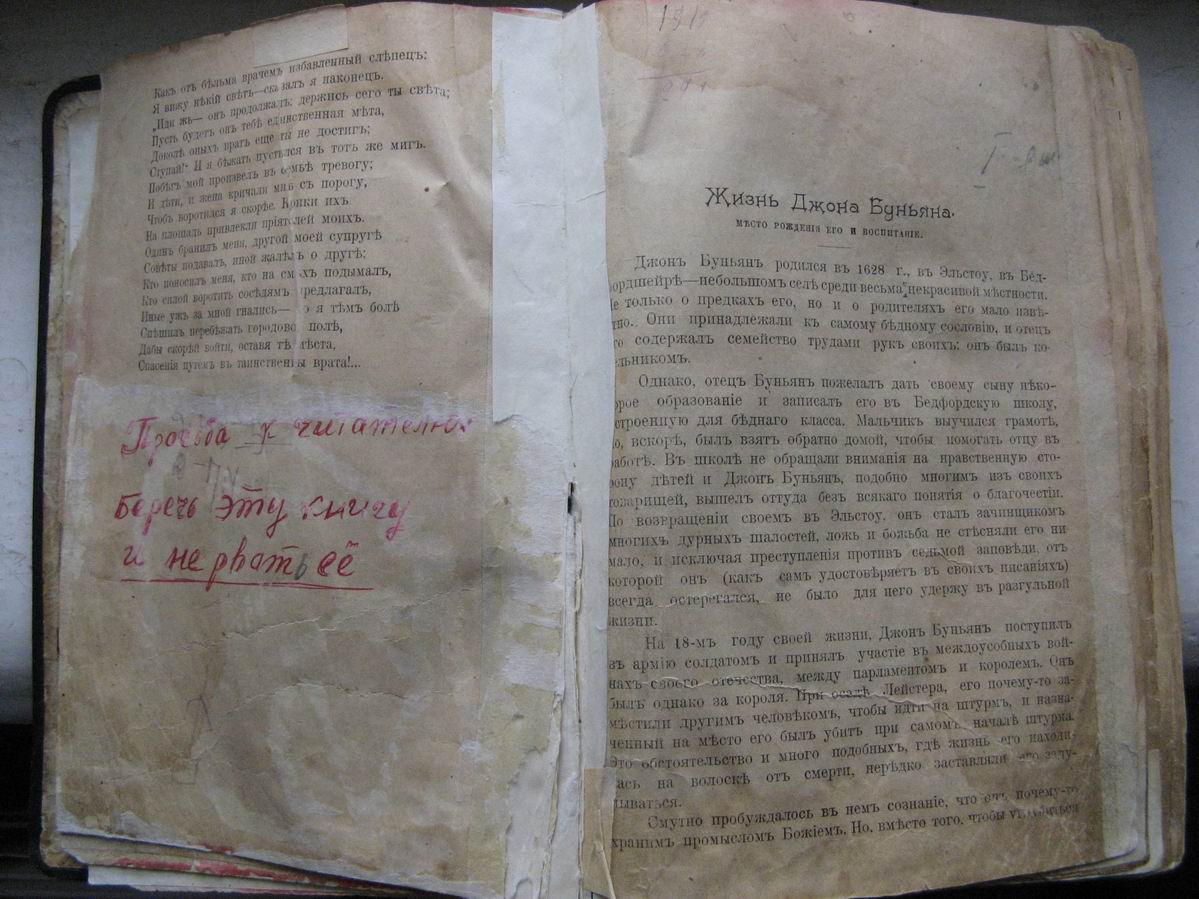 Какъ отъ бѣльма врачемъ избавленный слѣпецъ:
Я вижу нѣкій свѣтъ—сказалъ я наконецъ.
„Иди жь— онъ продолжалъ: держись сего ты свѣта;
Пусть будетъ онъ тебѣ единственная мѣта,
Доколѣ оныхъ вратъ еще ты не достигъ;
Ступай!“ И я бѣжать пустился въ тотъ же мигъ.
Побѣгъ мой произвелъ въ семьѣ тревогу;
И дѣти, и жена кричали мнѣ съ порогу,
Чтобъ воротился я скорѣе. Крики ихъ
На площадь привлекли пріятелей моихъ.
Одинъ бранилъ меня, другой моей супругѣ
Совѣты подавалъ, иной жалѣлъ о другѣ;
Кто поносилъ меня, кто на смѣхъ подымалъ,
Кто силой воротить сосѣдямъ предлагалъ,
Иные ужъ за мной гнались— но я тѣмъ болѣ
Спѣшилъ перебѣжать городово полѣ,
Дабы скорѣй войти, оставя тѣ мѣста,
Спасенія путемъ въ таинственны врата!...
Просьба к читателю:
Беречь эту книгу
и не рвать её
1911
Жизнь Джона Буньяна.
МѢСТО РОЖДЕНІЯ ЕГО И ВОСПИТАНІЕ.
Джонъ Буньянъ родился въ 1628 г., въ Эльстоу, въ Бед-
фордшейрѣ—небольшомъ селѣ среди весьма некрасивой мѣстности.
Не только о предкахъ его, но и о родителяхъ его мало извѣ-
стно. Они принадлежали къ самому бѣдному сословію, и отецъ
его содержалъ семейство трудами рукъ своихъ: онъ былъ ко-
тельникомъ.
Однако, отецъ Буньянъ пожелалъ дать своему сыну нѣко-
торое образованіе и записалъ его въ Бедфордскую школу,
устроенную для бѣднаго класса. Мальчикъ выучился грамотѣ,
но, вскорѣ, былъ взятъ обратно домой, чтобы помогать отцу въ
работѣ. Въ школѣ не обращали вниманія на нравственную сто-
рону дѣтей и Джонъ Буньянъ, подобно многимъ изъ своихъ
товарищей, вышелъ оттуда безъ всякаго понятія о благочестіи.
По возвращеніи своемъ въ Эльстоу, онъ сталъ зачинщикомъ
многихъ дурныхъ шалостей, ложь и божьба не стѣсняли его ни
мало, и исключая преступленія противъ седьмой заповѣди, отъ
которой онъ (какъ самъ удостовѣряетъ въ своихъ писаніяхъ)
всегда остерегался, не было для него удержу въ разгульной
жизни.
На 18-мъ году своей жизни, Джонъ Буньянъ поступилъ
въ армію солдатомъ и принялъ участіе въ междоусобныхъ вой-
нахъ своего отечества, между парламентомъ и королемъ. Онъ
былъ однако за короля. При осадѣ Лейстера, его почему-то за-
мѣстили другимъ человѣкомъ, чтобы идти на штурмъ, и назна-
ченный на мѣсто его былъ убитъ при самомъ началѣ штурма.
Это обстоятельство и много подобныхъ, гдѣ жизнь его находи-
лась на волоскѣ отъ смерти, нерѣдко заставляли его заду-
мываться.
Смутно пробуждалось въ немъ сознаніе, что онъ почему-то
хранимъ промысломъ Божіемъ. Но, вмѣсто того, чтобы углубиться